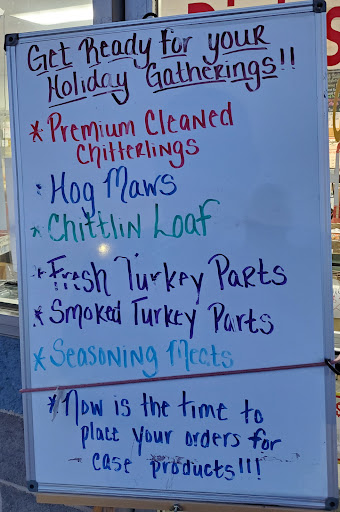 Get Ready for your
Holiday Gatherings!!
* Premium Cleaned
Chitterlings
* Hog Maws
* Chittlin Loaf
* Fresh Turkey Parts
* Smoked Turkey Parts
* Seasoning Meats
* Now is the time to
place your orders for
case products!!!